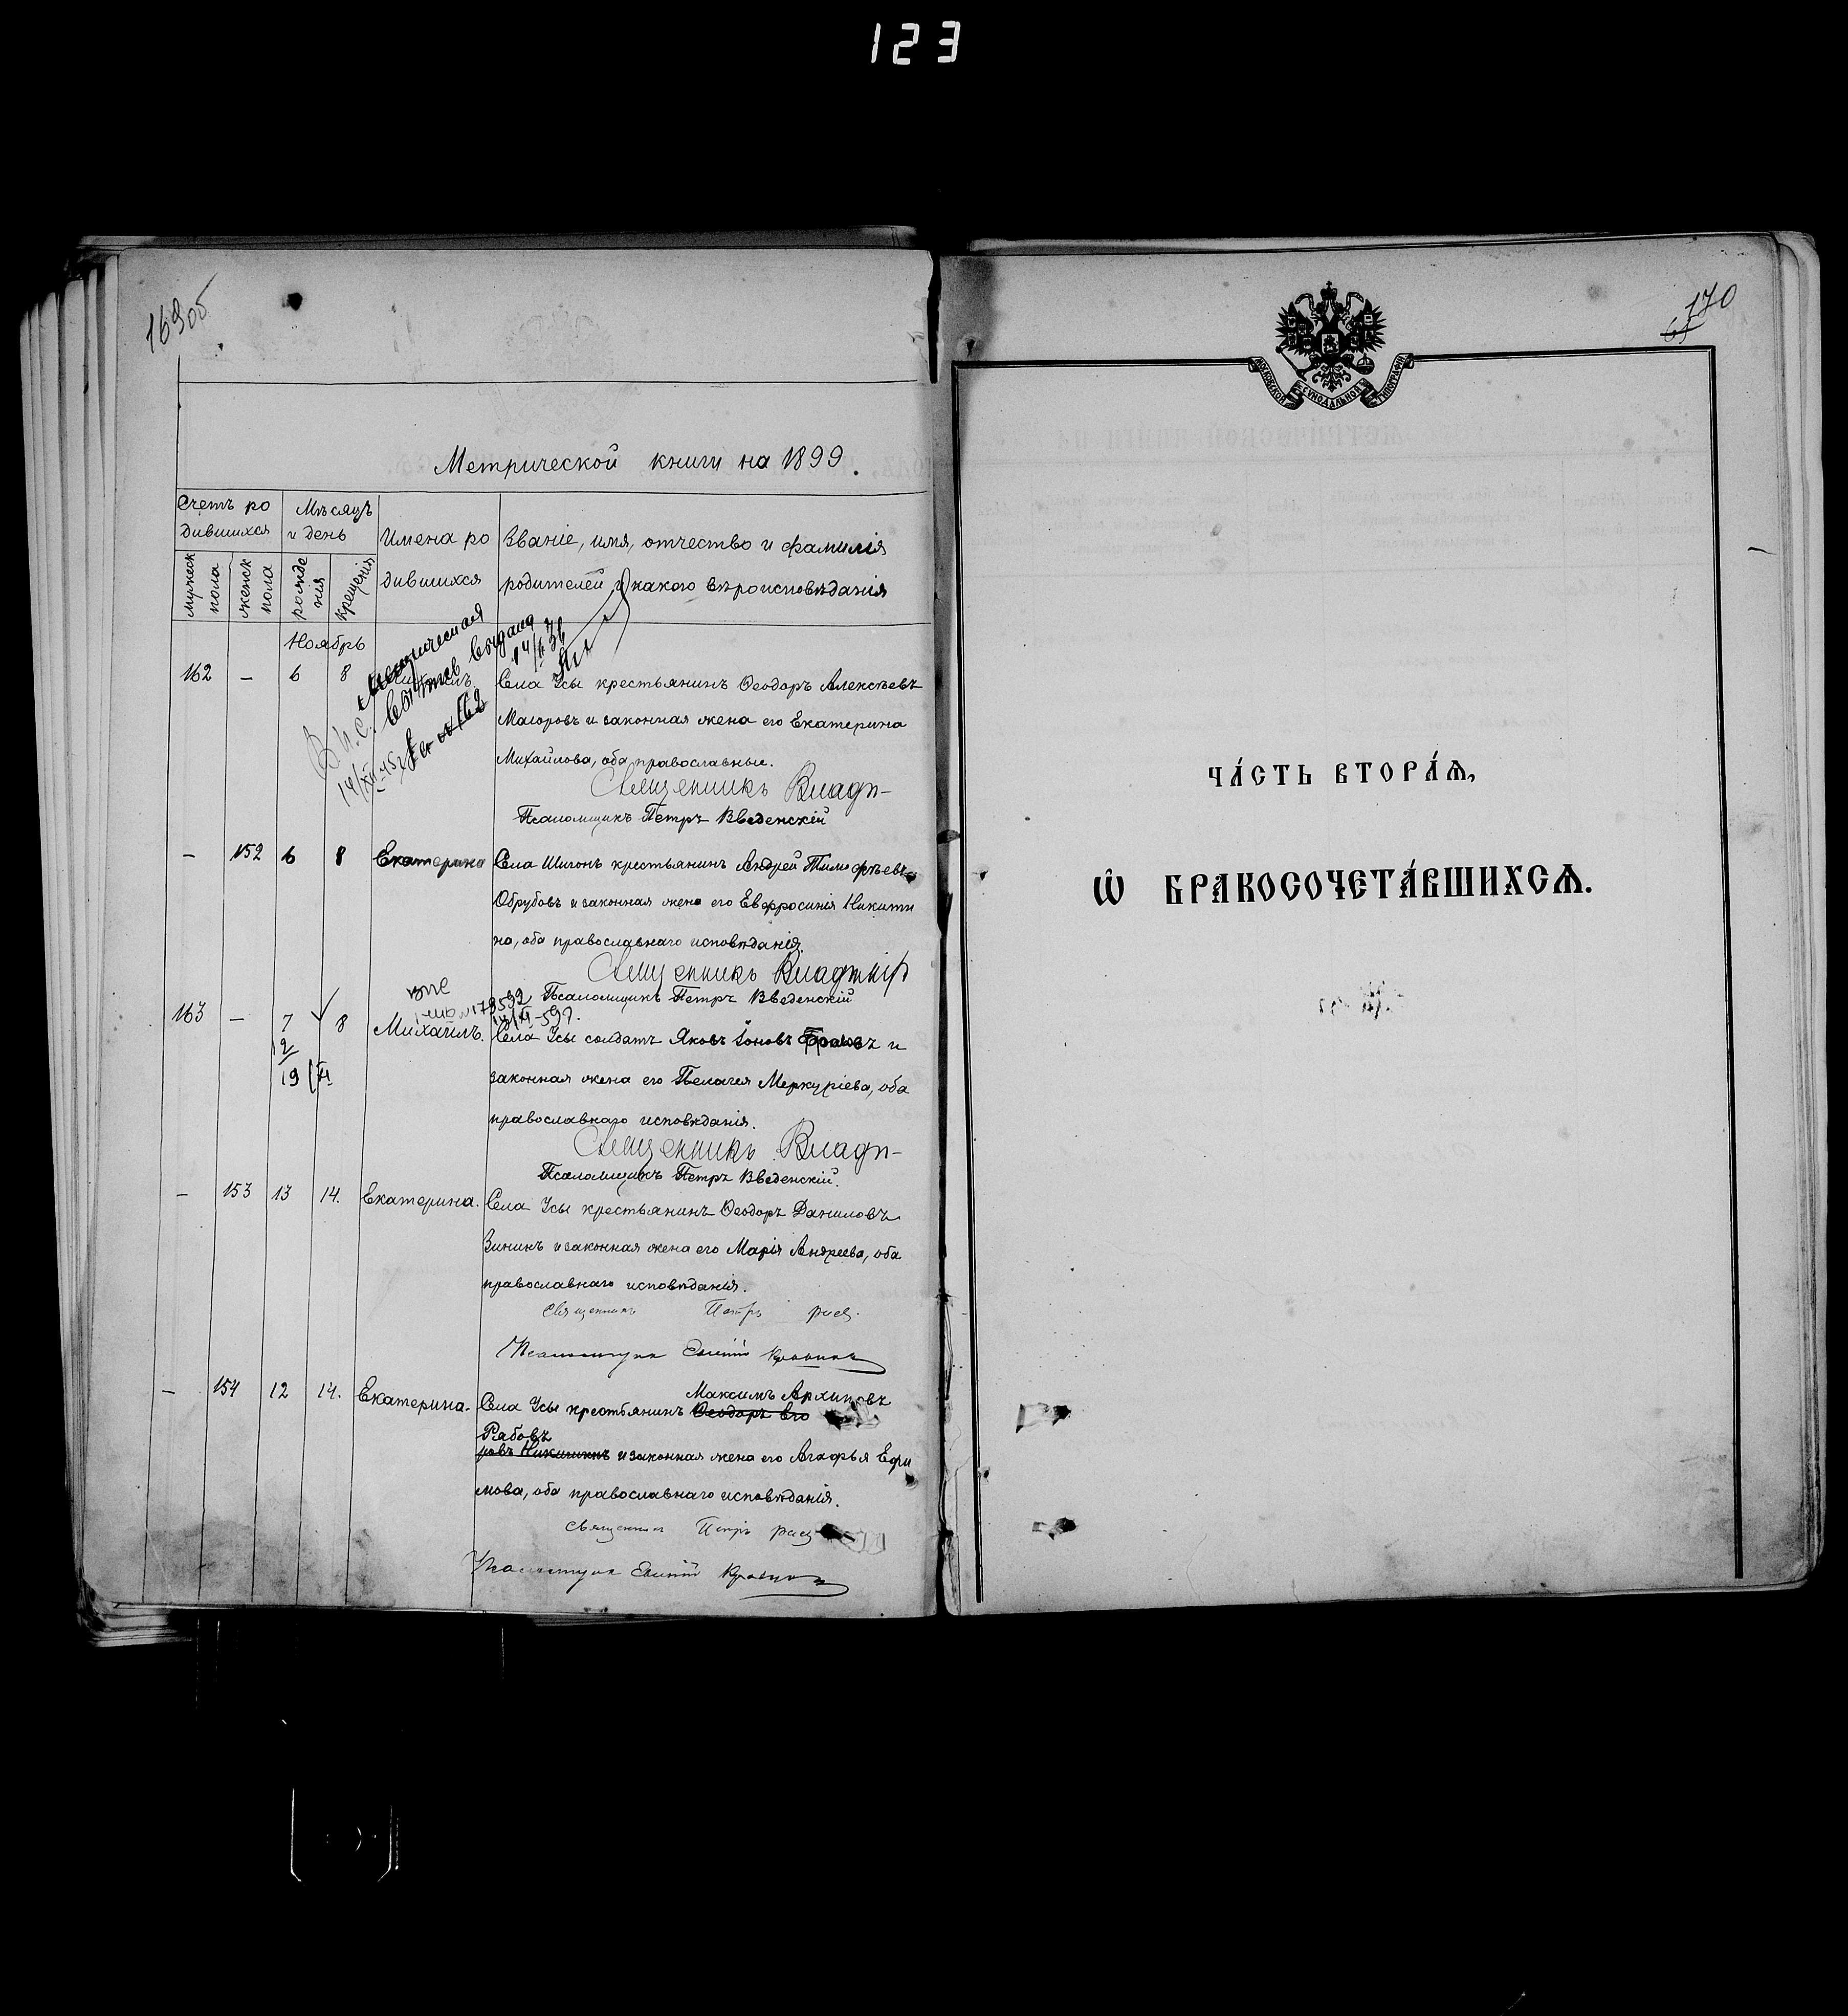 123
169об
Метрической книги на 1899.
Счетъ ро
дившихся
Мѣсяцъ
и день
Имена ро
дившихся
Званіе, имя, отчество и фамилія
родителей и какого вѣроисповѣданія
мужеск
пола
женск
пола
рожде
нія
крещенія
Ноябрь
выдана
162 – 6 8
Села Усы крестьянинъ Ѳеодоръ Алексѣевъ
Маіоровъ и законная жена его Екатерина
Михайлова, оба православные.
Священникъ
Псаломщикъ Петръ Введенскій
– 152 6 8 Екатерина Села Шигонъ крестьянинъ Андрей Тимофѣевъ
Обрубовъ и законная жена его Евфросинія Никити
на, оба православнаго исповѣданія.
Священникъ
Псаломщикъ Петръ Введенскій
163 – 7 8 Михаилъ. Села Усы солдатъ Яковъ Іоновъ и
12
19/XI
законная жена его Пелагея Меркуріева, оба
православнаго исповѣданія.
Священникъ
Псаломщикъ Петръ Введенскій.
– 153 13 14. Екатерина. Села Усы крестьянинъ Ѳеодоръ Даниловъ
Зининъ и законная жена его Марія Андреева, оба
православнаго исповѣданія.
Священникъ Петръ
Псаломщикъ
– 154 12 14. Екатерина. Села Усы крестьянинъ Ѳеодоръ Его
Максимъ Архиповъ
Рябовъ
ровъ и законная жена его Агафья Ефи
мова, оба православнаго исповѣданія.
Священникъ Петръ
Псаломщикъ
170
МОСКОВСКОЙ СѴНОДАЛЬНОЙ ТИПОГРАФІИ
ЧА́СТЬ ВТОРА́Ѧ,
Ѡ҆ БРАКОСОЧЕТА́ВШИХСѦ.